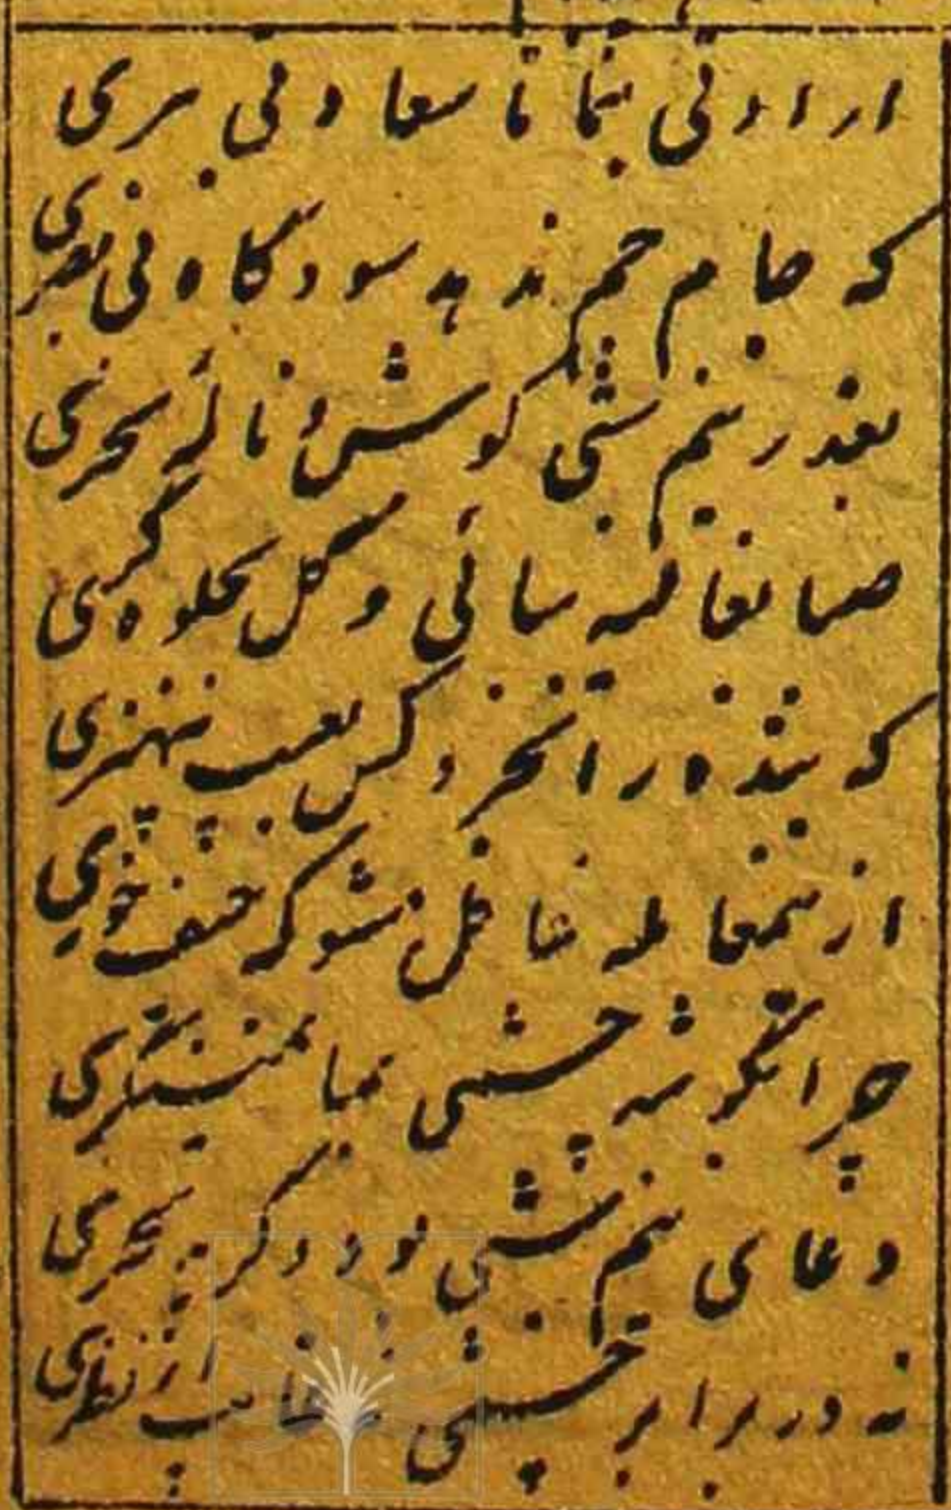 ارادتی بنما تا سعادتی ببری
که جام جم ندهد سود گاه بی بصری
بعذر نیم شبی کوش و نالهٔ سحری
صبا بغالیه سائی و گل بجلوه گری
که بنده را نخرد کس بعیب بیهنری
ازینمعامله غافل مشو که حیف خوری
چرا بگوشه چشمی بما نمینگری
دعای نیم شبی بود و گریه سحری
نه در برابر چشمی نه غایب از نظری